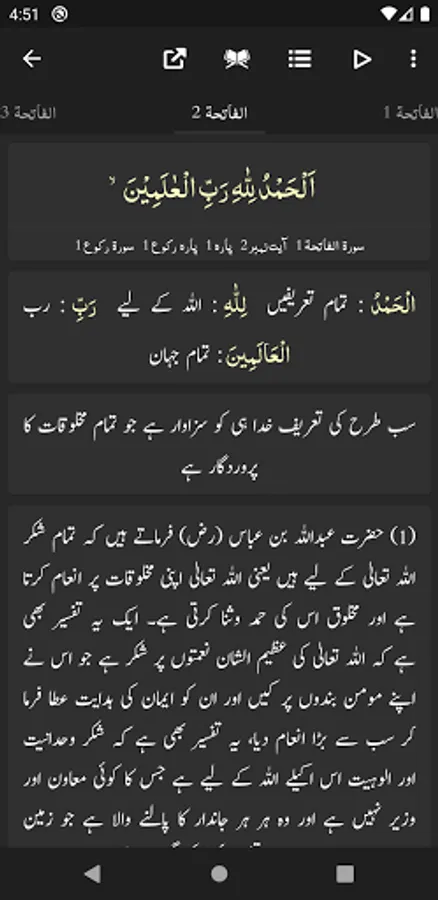 4:51
الفاتحة 1
الفاتحة 2
الفاتحة 3
اَلْحَمْدُ لِلّٰهِ رَبِّ الْعٰلَمِيْنَ ۙ
سورۃ الفاتحة 1 آیت نمبر 2 پارہ 1 پارہ رکوع 1 سورۃ رکوع 1
الْحَمْدُ : تمام تعریفیں لِلّٰهِ : اللہ کے لیے رَبِّ : رب
الْعَالَمِينَ : تمام جہان
سب طرح کی تعریف خدا ہی کو سزاوار ہے جو تمام مخلوقات کا
پروردگار ہے
(1) حضرت عبداللہ بن عباس (رض) فرماتے ہیں کہ تمام شکر
اللہ تعالیٰ کے لیے ہیں یعنی اللہ تعالیٰ اپنی مخلوقات پر انعام کرتا
ہے اور مخلوق اس کی حمد وثنا کرتی ہے۔ ایک یہ تفسیر بھی
ہے کہ اللہ تعالیٰ کی عظیم الشان نعمتوں پر شکر ہے جو اس نے
اپنے مومن بندوں پر کیں اور ان کو ایمان کی ہدایت عطا فرما
کر سب سے بڑا انعام دیا، یہ تفسیر بھی ہے کہ شکر وحدانیت
اور الوہیت اس اکیلے اللہ کے لیے ہے جس کا کوئی معاون اور
وزیر نہیں ہے اور وہ ہر ہر جاندار کا پالنے والا ہے جو زمین